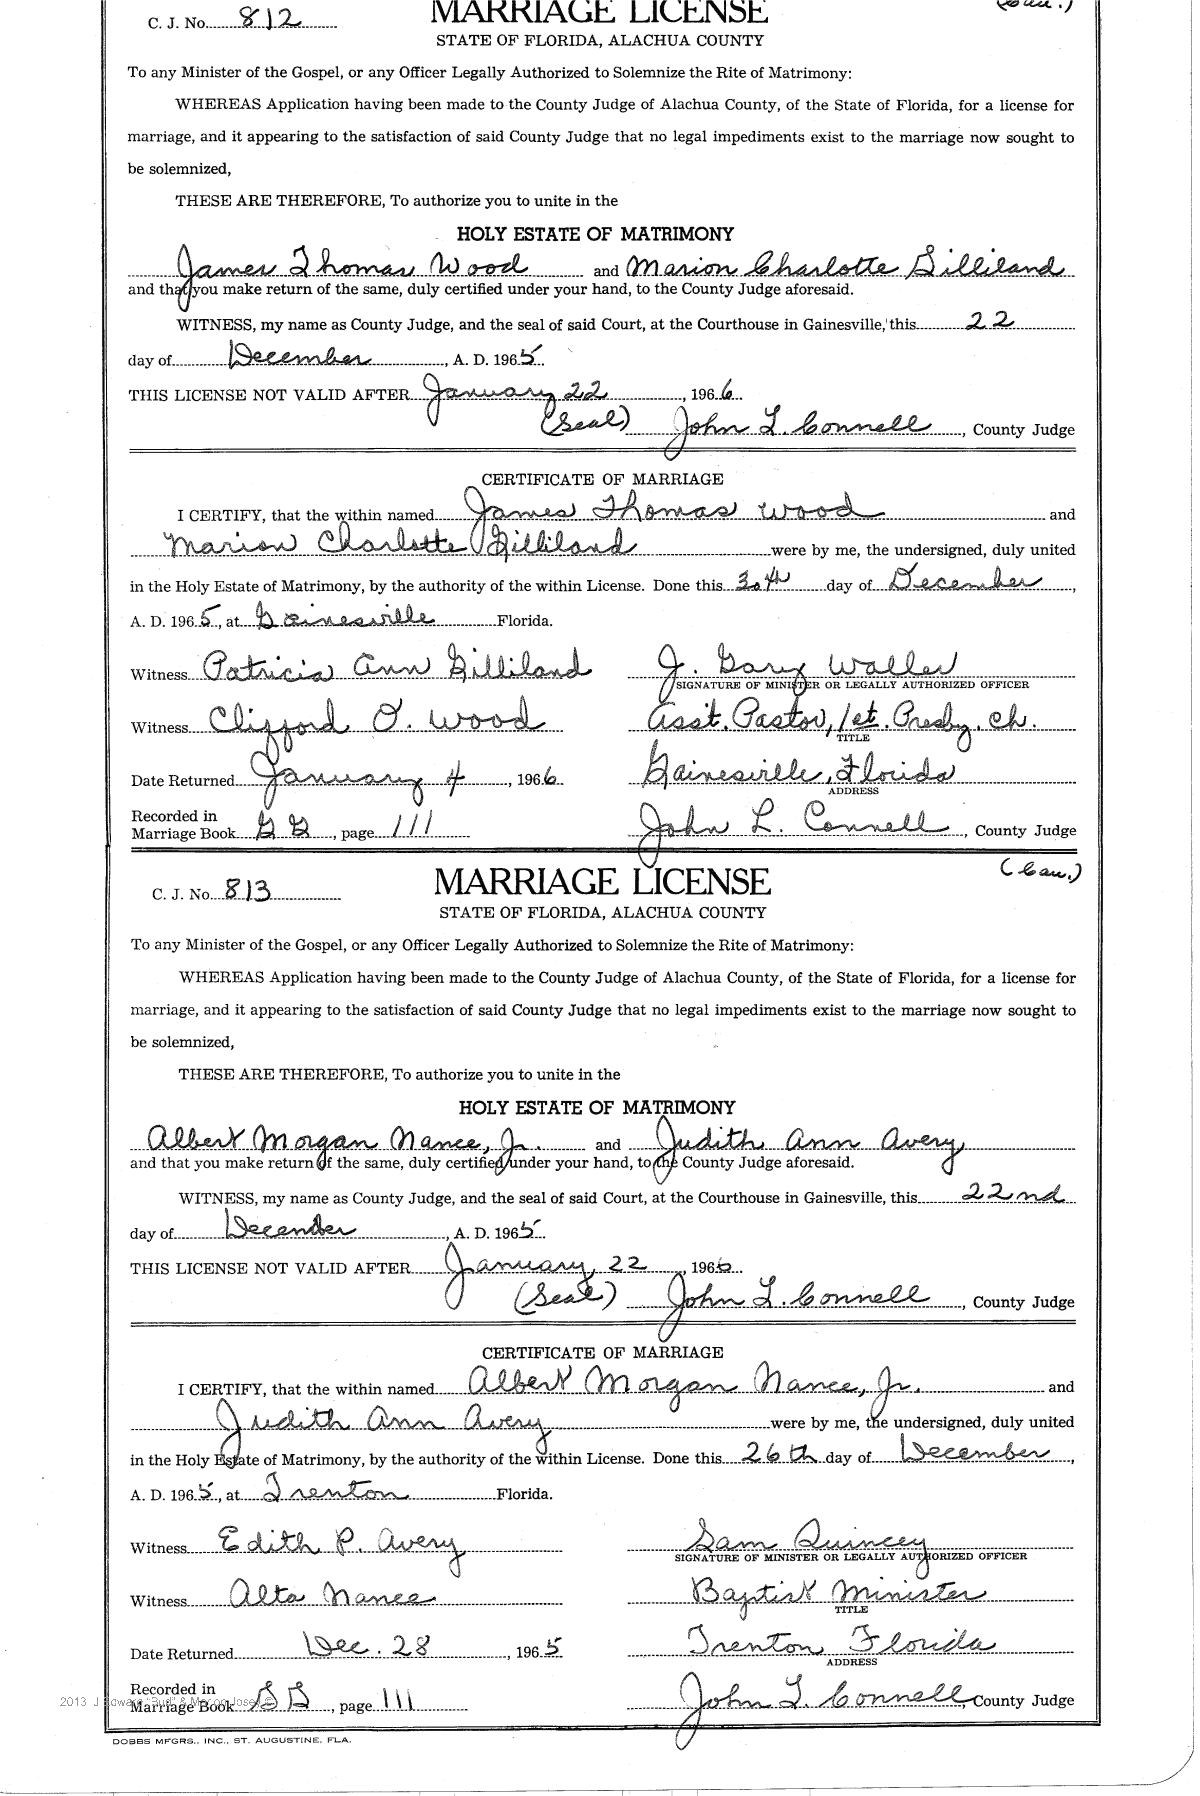 C. J. No. 812
MARRIAGE LICENSE
STATE OF FLORIDA, ALACHUA COUNTY
To any Minister of the Gospel, or any Officer Legally Authorized to Solemnize the Rite of Matrimony:
WHEREAS Application having been made to the County Judge of Alachua County, of the State of Florida, for a license for
marriage, and it appearing to the satisfaction of said County Judge that no legal impediments exist to the marriage now sought to
be solemnized,
THESE ARE THEREFORE, To authorize you to unite in the
HOLY ESTATE OF MATRIMONY
James Thomas Wood and Marion Charlotte Gilliland
and that you make return of the same, duly certified under your hand, to the County Judge aforesaid.
WITNESS, my name as County Judge, and the seal of said Court, at the Courthouse in Gainesville, this 22
day of December, A. D. 1965
THIS LICENSE NOT VALID AFTER January 22, 1966
(Seal) John L. Connell, County Judge
CERTIFICATE OF MARRIAGE
I CERTIFY, that the within named James Thomas Wood and
Marion Charlotte Gilliland were by me, the undersigned, duly united
in the Holy Estate of Matrimony, by the authority of the within License. Done this 30th day of December,
A. D. 1965, at Gainesville Florida.
Witness Patricia Ann Gilliland J. Gary Waller
SIGNATURE OF MINISTER OR LEGALLY AUTHORIZED OFFICER
Witness Clifford O. Wood Ass't. Pastor, 1st. Presby. Ch.
TITLE
Date Returned January 4, 1966 Gainesville, Florida
ADDRESS
Recorded in
Marriage Book GG, page 111 John L. Connell, County Judge
(Cau.)
C. J. No. 813
MARRIAGE LICENSE
STATE OF FLORIDA, ALACHUA COUNTY
To any Minister of the Gospel, or any Officer Legally Authorized to Solemnize the Rite of Matrimony:
WHEREAS Application having been made to the County Judge of Alachua County, of the State of Florida, for a license for
marriage, and it appearing to the satisfaction of said County Judge that no legal impediments exist to the marriage now sought to
be solemnized,
THESE ARE THEREFORE, To authorize you to unite in the
HOLY ESTATE OF MATRIMONY
Albert Morgan Nance, Jr. and Judith Ann Avery
and that you make return of the same, duly certified under your hand, to the County Judge aforesaid.
WITNESS, my name as County Judge, and the seal of said Court, at the Courthouse in Gainesville, this 22nd
day of December, A. D. 1965
THIS LICENSE NOT VALID AFTER January 22, 1966
(Seal) John L. Connell, County Judge
CERTIFICATE OF MARRIAGE
I CERTIFY, that the within named Albert Morgan Nance, Jr. and
Judith Ann Avery were by me, the undersigned, duly united
in the Holy Estate of Matrimony, by the authority of the within License. Done this 26th day of December,
A. D. 1965, at Trenton Florida.
Witness Edith P. Avery Sam Quincey
SIGNATURE OF MINISTER OR LEGALLY AUTHORIZED OFFICER
Witness Alta Nance Baptist Minister
TITLE
Date Returned Dec. 28, 1965 Trenton, Florida
ADDRESS
Recorded in
Marriage Book GG, page 111 John L. Connell, County Judge
DOBBS MFGRS., INC., ST. AUGUSTINE, FLA.